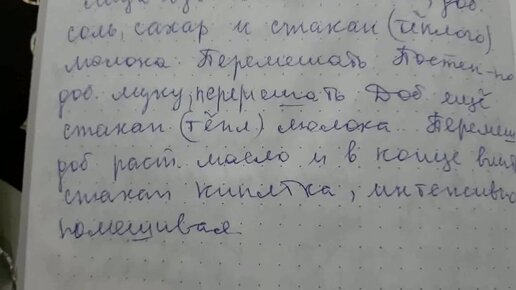 доб.
соль, сахар и стакан (тёплого)
молока. Перемешать Постеп-но
доб. муку, перемешать Доб ещё
стакан (тёпл) молока. Перемеш
доб раст. масло и в конце влит
стакан кипятка, интенсивно
помешивая